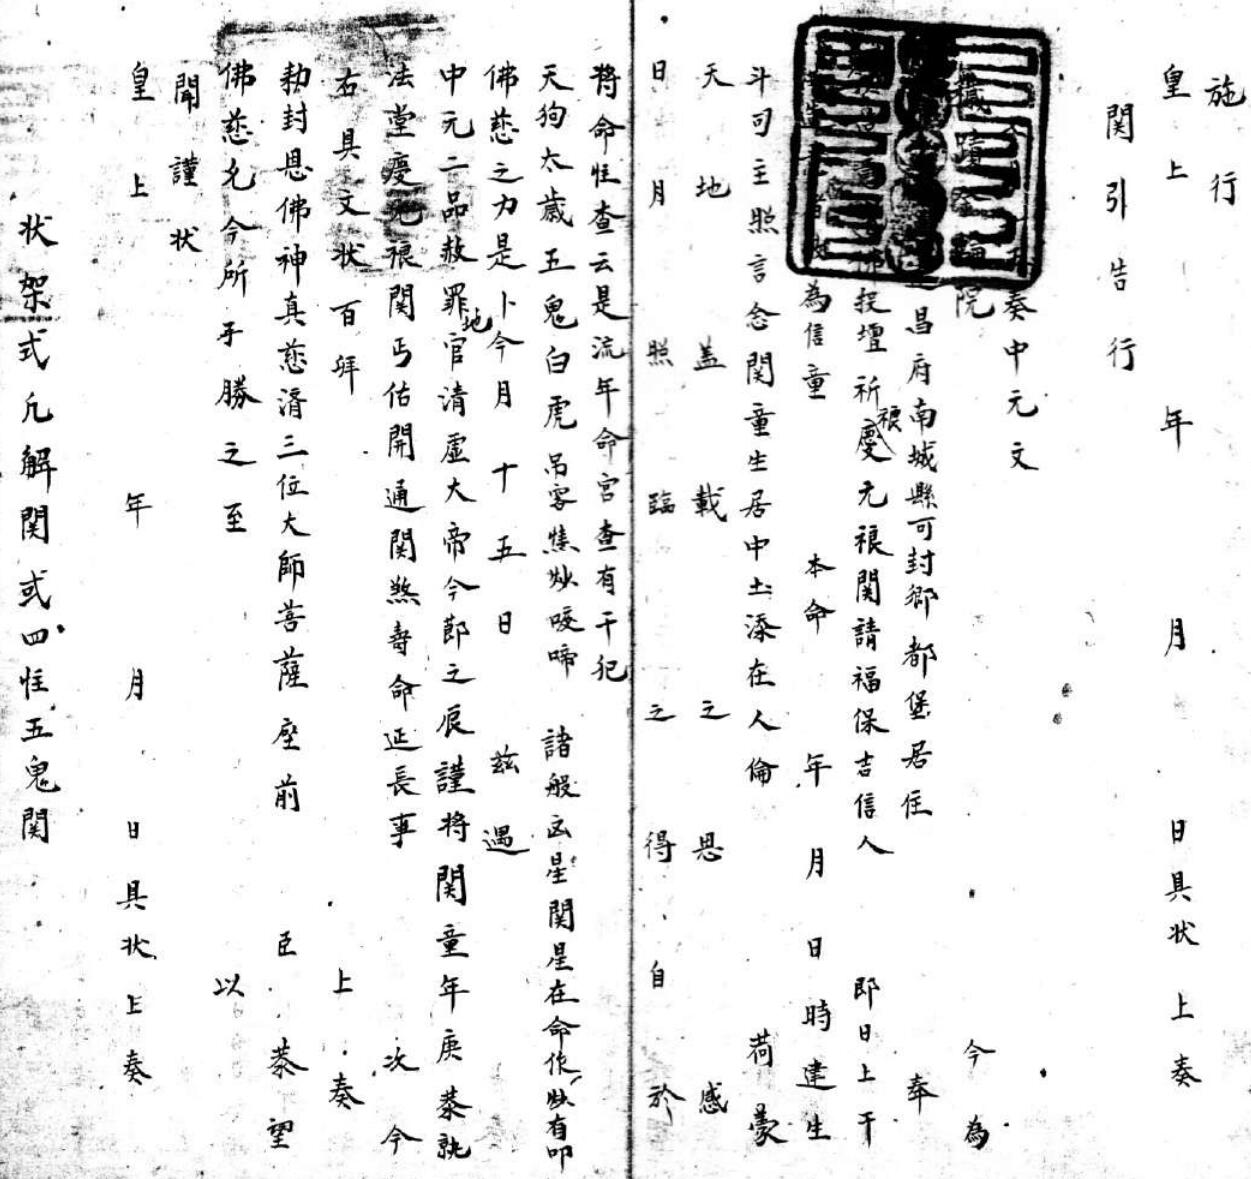 施行
皇上 年 月 日具状上奏
関引告行
奏中元文
院 今為
昌府南城縣可封鄉都堡居住 奉
佛投壇祈慶元禳関請福保吉信人 即日上干
為信童 本命 年 月 日時建生
斗司主照言念関童生居中土添在人倫 荷蒙
天地蓋載之恩 感
日月照臨之得 自於
将命徃查云是流年命宮查有干犯
天狗太歲五鬼白虎吊客 諸般凶星関星在命作 有叩
佛慈之力是卜今月十五日 兹遇
中元二品赦罪地官清虛大帝今節之辰謹将関童年庚恭就
法堂慶元禳関丐估開通関煞壽命延長事 次今
右具文状百拜 上奏
勅封恩佛神真慈濟三位大師菩薩座前 臣恭望
佛慈允今所乎勝之至 以
聞謹状
皇上 年 月 日具状上奏
状架式凢解関或四徃五鬼関